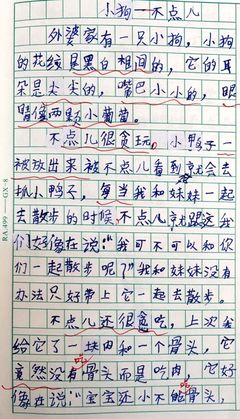 小狗——不点儿
外婆家有一只小狗，小狗
的花纹是黑白相间的，它的耳
朵是尖尖的，嘴巴小小的，眼
睛像两颗小葡萄。
不点儿很贪玩。小鸭子一
被放出来被不点儿看到就会去
抓小鸭子，每当我和妹妹一起
去散步的时候，不点儿就跟这我
们好像在说：“我可不可以和你
们一起散步呢？”我和妹妹没有
办法只好带上它一起去散步。
不点儿还很贪吃，上次我
给它了一块肉和一个骨头，它
竟然没有吃骨头而是吃肉，它好
像在说：“宝宝还小不能吃骨头，
RA499—GX-8